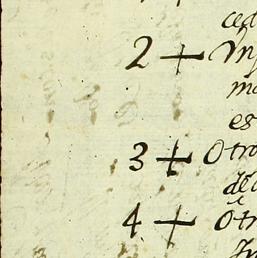 ced
2 +
ma
es
3 + Otro
de
4 + Otr